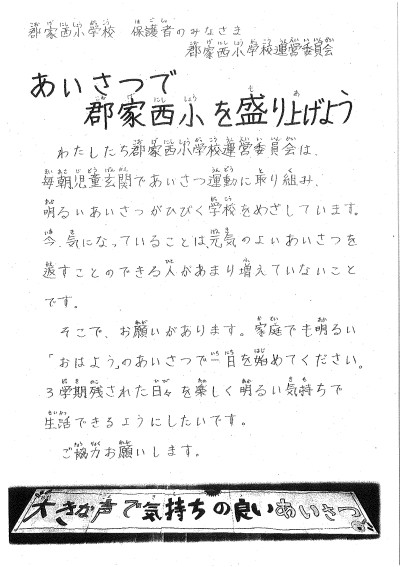 郡家西小学校　保護者のみなさま
郡家西小学校運営委員会
あいさつで
郡家西小を盛り上げよう
わたしたち郡家西小学校運営委員会は、
毎朝児童玄関であいさつ運動に取り組み、
明るいあいさつがひびく学校をめざしています。
今、気になっていることは、元気のよいあいさつを
返すことのできる人があまり増えていないこと
です。
そこで、お願いがあります。家庭でも明るい
「おはよう」のあいさつで一日を始めてください。
3学期残された日々を楽しく明るい気持ちで
生活できるようにしたいです。
ご協力お願いします。
大きな声で気持ちの良いあいさつ